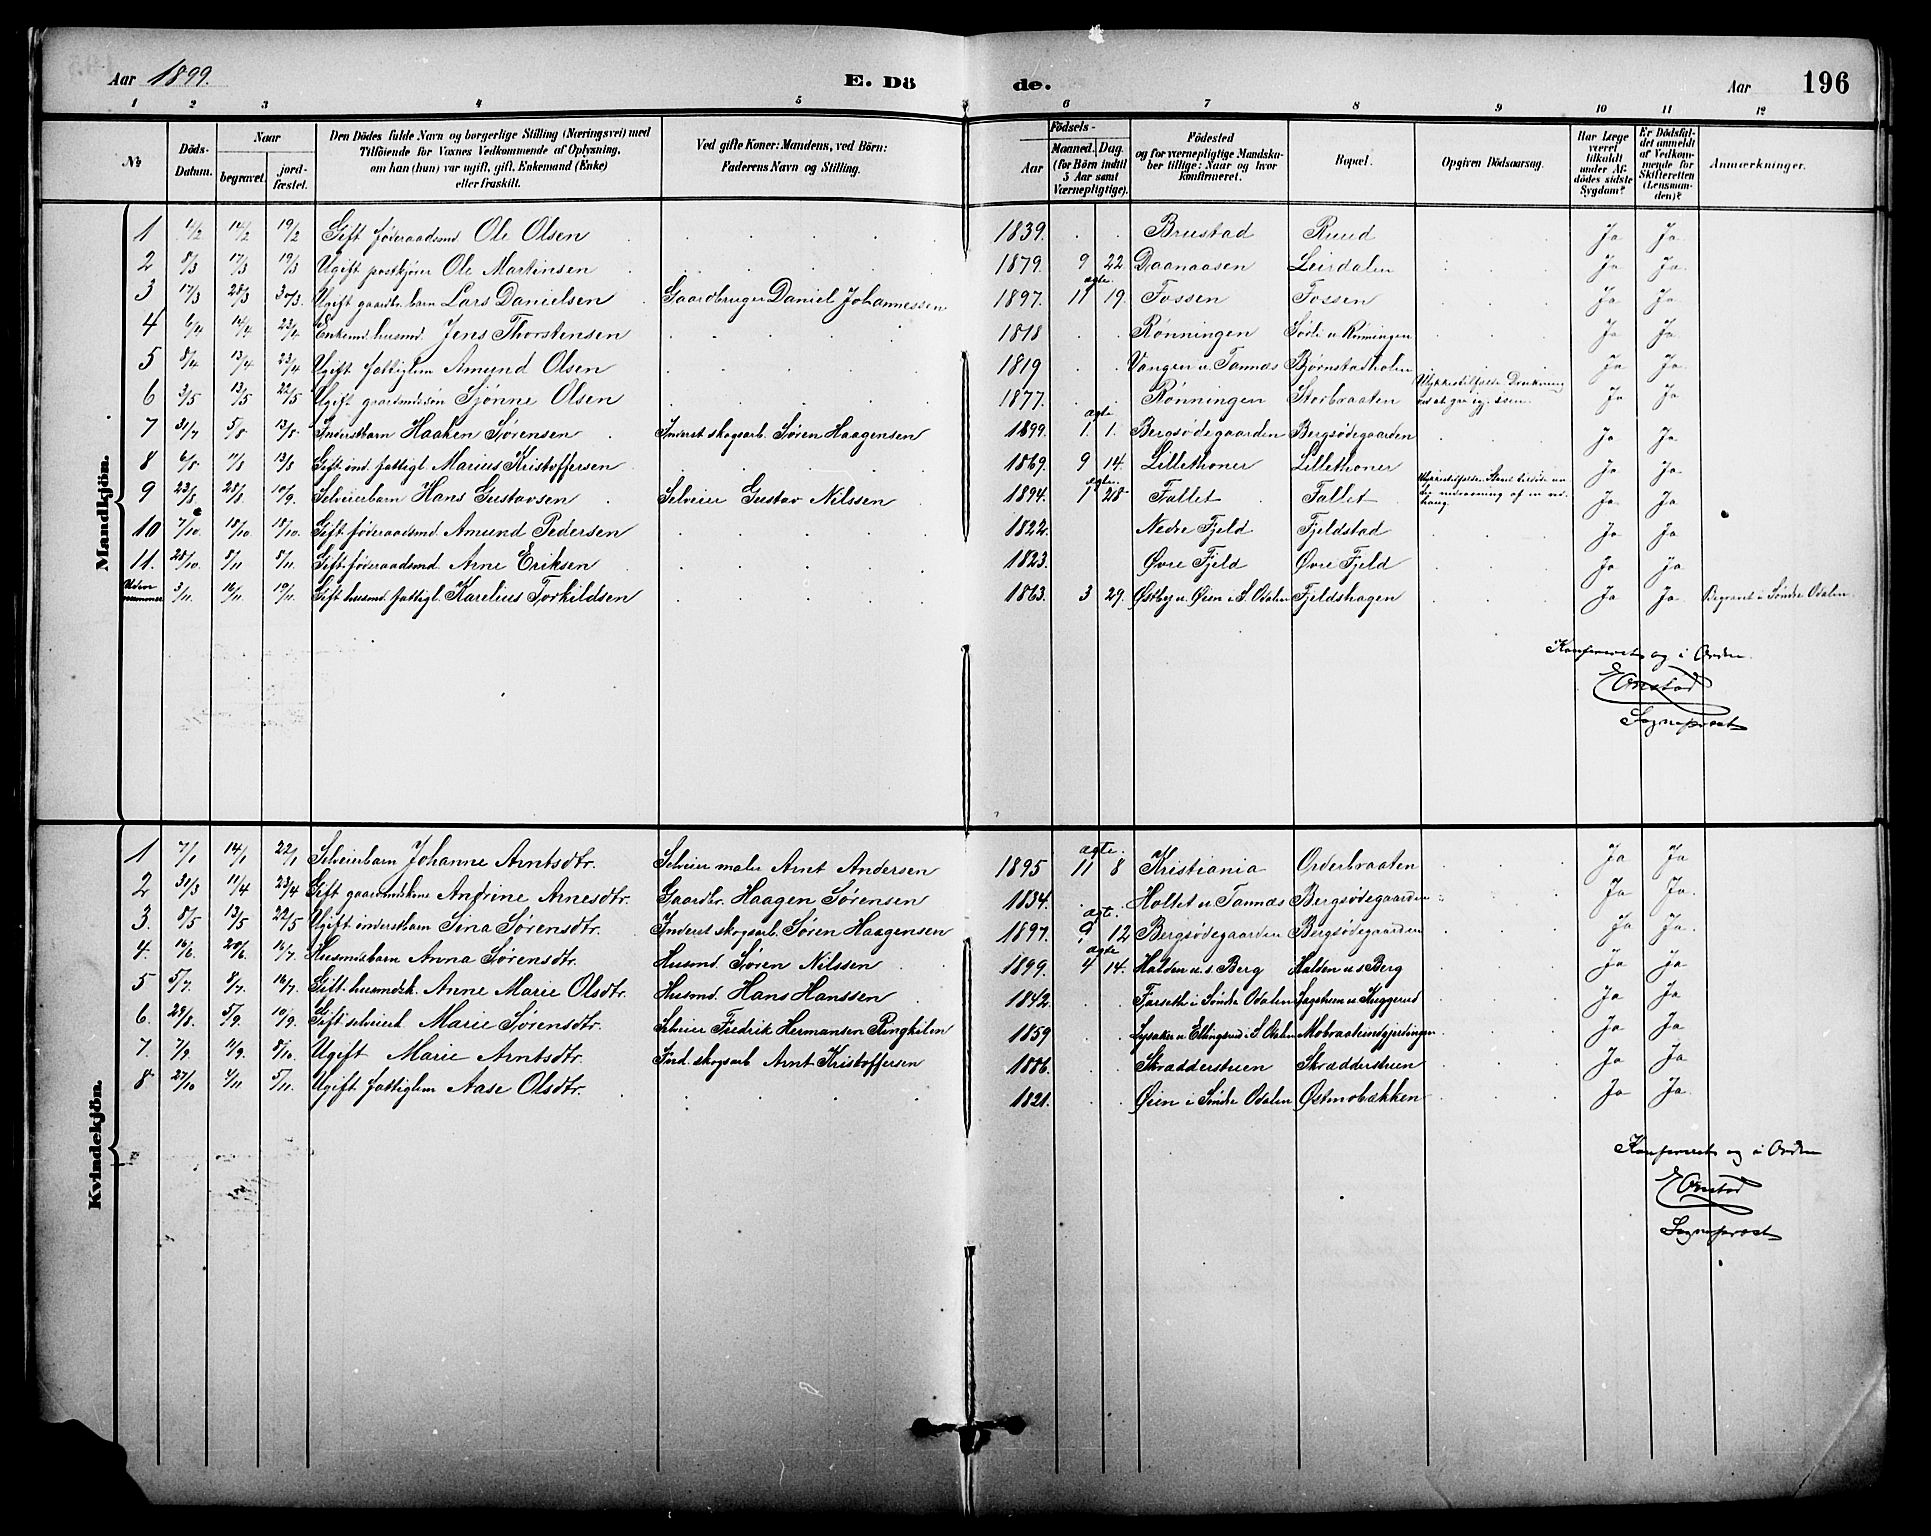 Aar 1899. E. Dö de. Aar 196
1 2 3 4 5 6 7 8 9 10 11 12
No
Döds-Datum.
Naar begravet. jordfæstet.
Den Dödes fulde Navn og borgerlige Stilling (Næringsvei) med Tilföiende for Voxnes Vedkommende af Oplysning, om han (hun) var ugift, gift, Enkemand (Enke) eller fraskilt.
Ved gifte Koner: Mandens, ved Börn: Faderens Navn og Stilling.
Födsels-Aar Maaned. Dag. (for Börn indtil 5 Aar samt Værnepligtige).
Födested og for værnepligtige Mandskaber tillige: Naar og hvor konfirmeret.
Bopæl.
Opgiven Dödsaarsag.
Har Læge været tilkaldt under Afdödes sidste Sygdom?
Er Dödsfaldet anmeldt af Vedkommende for Skifteretten (Lensmanden)?
Anmærkninger.
Mandkjön.
1 14/2 19/2 Gift føderaadsmd Ole Olsen 1839. Brustad Ruud Ja Ja
2 8/3 17/3 19/3 Ugift postkjører Ole Martinsen 1879. 9 22 Daanaasen Leirdalen Ja Ja.
3 17/3 28/3 3/3 Ugift gaardbr.barn Lars Danielsen Gaardbruger Daniel Johannessen 1897. 11 ægte. 19. Fossen Fossen Ja Ja.
4 6/4 14/4 23/4 Enkemd. husmd. Jens Thorstensen 1818 Rønningen Sørli u. Rønningen Ja Ja.
5 8/4 13/4 23/4 Ugift fattiglem Amund Olsen 1819 Vangen u. Tannæs Bjørnstadholen Ja Ja
6 3/5 13/5 22/5 Ugift gaardmdssøn Sjønne Olsen 1877. Rønningen Storbraaten Ulykkestilfælde Drukning Ja Ja
7 31/7 5/8 13/8 Inderstbarn Haaken Sørensen Inderst skogsarb. Søren Haagensen 1899. ægte 1. 1. Bergsødegaarden Bergsødegaarden Ja Ja.
8 6/8 11/8 13/8 Gift ind. fattigl. Marius Kristoffersen 1869. 9 14. Lillethoner Lillethoner Ja Ja.
9 23/8 28/8 10/9 Selveierbarn Hans Gustavsen Selveier Gustav Nilssen 1894. ægte. 1 28 Fallet Fallet Ulykkestilfælde Ja Ja.
10 7/10 18/10 18/10. Gift føderaadsmd. Amund Pedersen 1822. Nedre Fjeld Fjeldstad Ja Ja
11. 28/10 8/11 8/11. Gift føderaadsmd. Arne Eriksen 1823. Øvre Fjeld Øvre Fjeld Ja Ja
Uden nummer 3/11 16/11 19/11. Gift husmd. fattigl. Karelius Torkildsen 1863. 3 29. Østby u. Øien i S. Odalen Fjeldshagen Ja Ja. Begravet i Søndre Odalen.
Konfereret og i Orden.
E Onstad
Sogneprest
Kvindekjön.
1 7/1 14/1 22/1 Selveierbarn Johanne Arntsdtr. Selveier maler Arnt Andersen 1895 ægte. 11 8 Kristiania Orderbraaten Ja Ja
2 31/3 11/4 23/4 Gift gaardmdskone Andrine Arnesdtr. Gaardbr. Haagen Sørensen 1834. Holtet u. Tannæs Bergsødegaarden Ja Ja.
3. 8/5 13/5 22/5 Ugift inderstbarn Sina Sørensdtr. Inderst skogsarb. Søren Haagensen 1897. ægte. 9 12 Bergsødegaarden Bergsødegaarden Ja Ja.
4. 14/6 20/6 14/7. Husmdsbarn Anna Sørensdtr. Husmd. Søren Nilssen 1899. ægte 4 14. Halden u. s. Berg Halden u. s Berg Ja Ja
5 5/7. 8/7. 16/7. Gift husmdsk. Anne Marie Olsdtr. Husmd. Hans Hanssen 1842. Farseth i Søndre Odalen Sagstuen u. Kuggerud Ja Ja
6. 29/8. 5/9. 10/9. Gift selveiersk Marie Sørensdtr. Selveier Fredrik Hermansen Ringkilen 1859 Lysaker u. Ellingsrud i S. Odalen Ja Ja
7. 7/9. 11/9. 8/10. Ugift Marie Arntsdtr. Ind. skogsarb Arnt Kristoffersen 1886. Skrædderstuen Skrædderstuen Ja Ja
8 27/10 4/11 5/11. Ugift fattiglem Aase Olsdtr. 1821. Øien i Søndre Odalen Østmobækken Ja Ja.
Konfereret og i Orden
E Onstad
Sogneprest